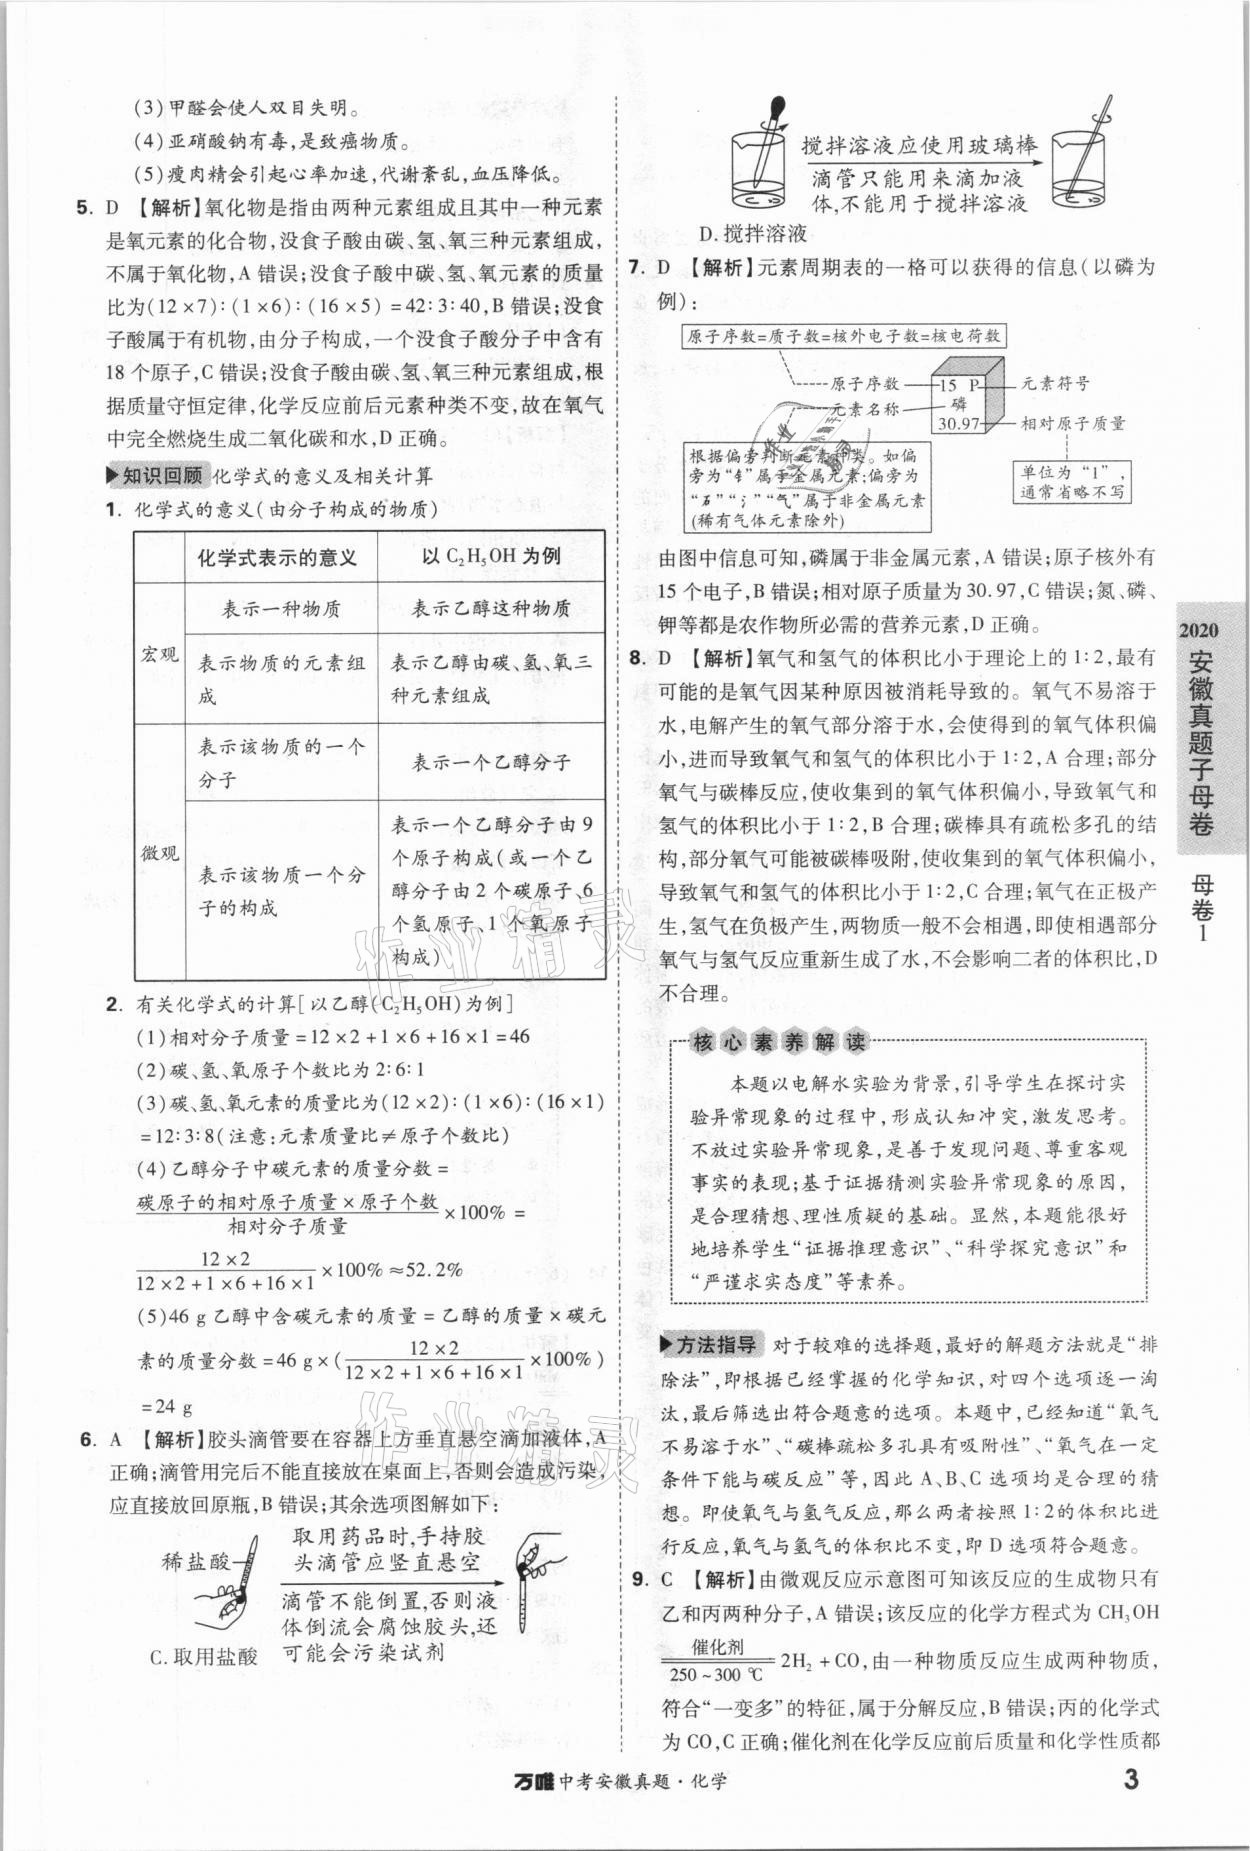 (3)甲醛会使人双目失明。
(4)亚硝酸钠有毒,是致癌物质。
(5)瘦肉精会引起心率加速,代谢紊乱,血压降低。
5. D 【解析】氧化物是指由两种元素组成且其中一种元素
是氧元素的化合物,没食子酸由碳、氢、氧三种元素组成,
不属于氧化物,A 错误;没食子酸中碳、氢、氧元素的质量
比为(12×7):(1×6):(16×5)=42:3:40,B 错误;没食
子酸属于有机物,由分子构成,一个没食子酸分子中含有
18 个原子,C 错误;没食子酸由碳、氢、氧三种元素组成,根
据质量守恒定律,化学反应前后元素种类不变,故在氧气
中完全燃烧生成二氧化碳和水,D 正确。
▶知识回顾 化学式的意义及相关计算
1. 化学式的意义(由分子构成的物质)
化学式表示的意义 以 C₂H₅OH 为例
宏观
表示一种物质 表示乙醇这种物质
表示物质的元素组成 表示乙醇由碳、氢、氧三种元素组成
微观
表示该物质的一个分子 表示一个乙醇分子
表示该物质一个分子的构成
表示一个乙醇分子由 9
个原子构成(或一个乙
醇分子由 2 个碳原子、6
个氢原子、1 个氧原子
构成)
2. 有关化学式的计算[以乙醇(C₂H₅OH)为例]
(1)相对分子质量=12×2+1×6+16×1=46
(2)碳、氢、氧原子个数比为 2:6:1
(3)碳、氢、氧元素的质量比为(12×2):(1×6):(16×1)
=12:3:8(注意:元素质量比≠原子个数比)
(4)乙醇分子中碳元素的质量分数=
碳原子的相对原子质量×原子个数
相对分子质量
×100% =
12×2
12×2+1×6+16×1
×100%≈52.2%
(5)46 g 乙醇中含碳元素的质量=乙醇的质量×碳元
素的质量分数=46 g×(12×2/12×2+1×6+16×1×100%)
=24 g
6. A 【解析】胶头滴管要在容器上方垂直悬空滴加液体,A
正确;滴管用完后不能直接放在桌面上,否则会造成污染,
应直接放回原瓶,B 错误;其余选项图解如下:
稀盐酸
C.取用盐酸
取用药品时,手持胶
头滴管应竖直悬空
滴管不能倒置,否则液
体倒流会腐蚀胶头,还
可能会污染试剂
搅拌溶液应使用玻璃棒
滴管只能用来滴加液
体,不能用于搅拌溶液
D.搅拌溶液
7. D 【解析】元素周期表的一格可以获得的信息(以磷为
例):
原子序数=质子数=核外电子数=核电荷数
原子序数
15 P
元素符号
元素名称
磷
30.97
相对原子质量
根据偏旁判断元素种类。如偏
旁为“钅”属于金属元素;偏旁为
“石”“氵”“气”属于非金属元素
(稀有气体元素除外)
单位为“1”,
通常省略不写
由图中信息可知,磷属于非金属元素,A 错误;原子核外有
15 个电子,B 错误;相对原子质量为 30.97,C 错误;氮、磷、
钾等都是农作物所必需的营养元素,D 正确。
8. D 【解析】氧气和氢气的体积比小于理论上的 1:2,最有
可能的是氧气因某种原因被消耗导致的。氧气不易溶于
水,电解产生的氧气部分溶于水,会使得到的氧气体积偏
小,进而导致氧气和氢气的体积比小于 1:2,A 合理;部分
氧气与碳棒反应,使收集到的氧气体积偏小,导致氧气和
氢气的体积比小于 1:2,B 合理;碳棒具有疏松多孔的结
构,部分氧气可能被碳棒吸附,使收集到的氧气体积偏小,
导致氧气和氢气的体积比小于 1:2,C 合理;氧气在正极产
生,氢气在负极产生,两物质一般不会相遇,即使相遇部分
氧气与氢气反应重新生成了水,不会影响二者的体积比,D
不合理。
核心素养解读
本题以电解水实验为背景,引导学生在探讨实
验异常现象的过程中,形成认知冲突,激发思考。
不放过实验异常现象,是善于发现问题、尊重客观
事实的表现;基于证据猜测实验异常现象的原因,
是合理猜想、理性质疑的基础。显然,本题能很好
地培养学生“证据推理意识”、“科学探究意识”和
“严谨求实态度”等素养。
▶方法指导 对于较难的选择题,最好的解题方法就是“排
除法”,即根据已经掌握的化学知识,对四个选项逐一淘
汰,最后筛选出符合题意的选项。本题中,已经知道“氧气
不易溶于水”、“碳棒疏松多孔具有吸附性”、“氧气在一定
条件下能与碳反应”等,因此 A、B、C 选项均是合理的猜
想。即使氧气与氢气反应,那么两者按照 1:2的体积比进
行反应,氧气与氢气的体积比不变,即 D 选项符合题意。
9. C 【解析】由微观反应示意图可知该反应的生成物只有
乙和丙两种分子,A 错误;该反应的化学方程式为 CH₃OH
催化剂
250~300 ℃
2H₂+CO,由一种物质反应生成两种物质,
符合“一变多”的特征,属于分解反应,B 错误;丙的化学式
为 CO,C 正确;催化剂在化学反应前后质量和化学性质都
2020
安徽真题子母卷
母卷1
万唯中考安徽真题·化学
3
作业精灵
作业精灵